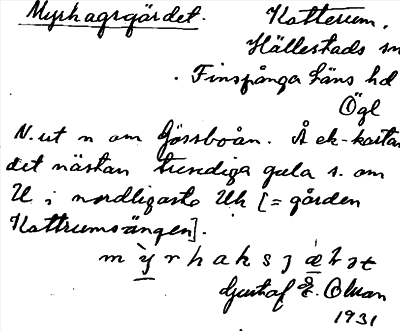 Myrhagsgärdet. Katterum,
Hällestads sn
Finspånga läns hd
Ögl
N. ut n om Gössboån. Å ek-kartan
det nästan tresidiga gula s. om
U i nordligaste Uh [= gården
Kattrumsängen].
Gustaf E. Olman
1931